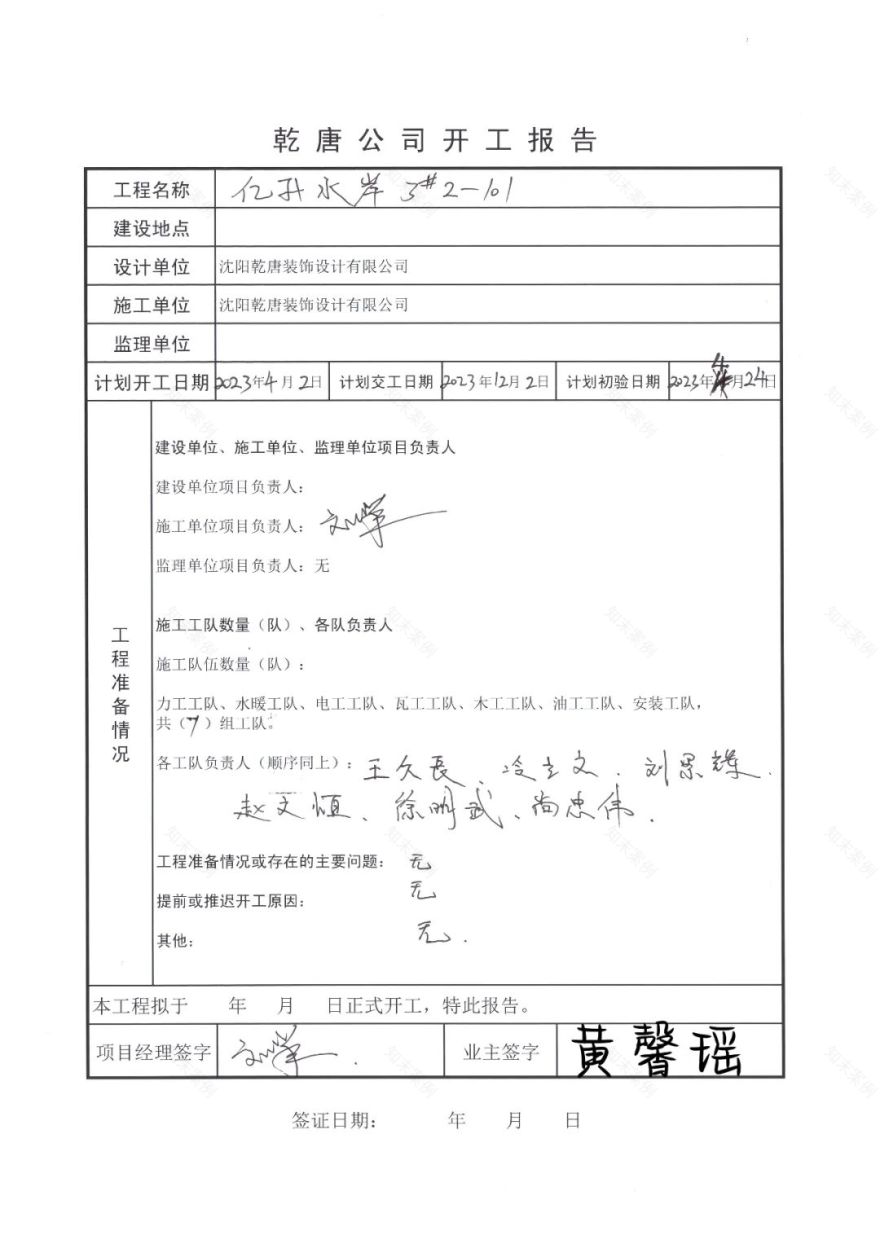 乾唐公司开工报告
工程名称 亿升水岸 3#2-101
建设地点
设计单位 沈阳乾唐装饰设计有限公司
施工单位 沈阳乾唐装饰设计有限公司
监理单位
计划开工日期 2023年4月2日 计划交工日期 2023年12月2日 计划初验日期 2023年4月24日
工程准备情况
建设单位、施工单位、监理单位项目负责人
建设单位项目负责人：
施工单位项目负责人：
监理单位项目负责人：无
施工工队数量（队）、各队负责人
施工队伍数量（队）：
力工工队、水暖工队、电工工队、瓦工工队、木工工队、油工工队、安装工队，
共（7）组工队。
各工队负责人（顺序同上）：王久長、冷立文．刘景辉．
赵文恒、徐明武、尚忠伟．
工程准备情况或存在的主要问题： 无
提前或推迟开工原因： 无
其他： 无．
本工程拟于 年 月 日正式开工，特此报告。
项目经理签字 业主签字 黄馨瑶
签证日期： 年 月 日
知末案例